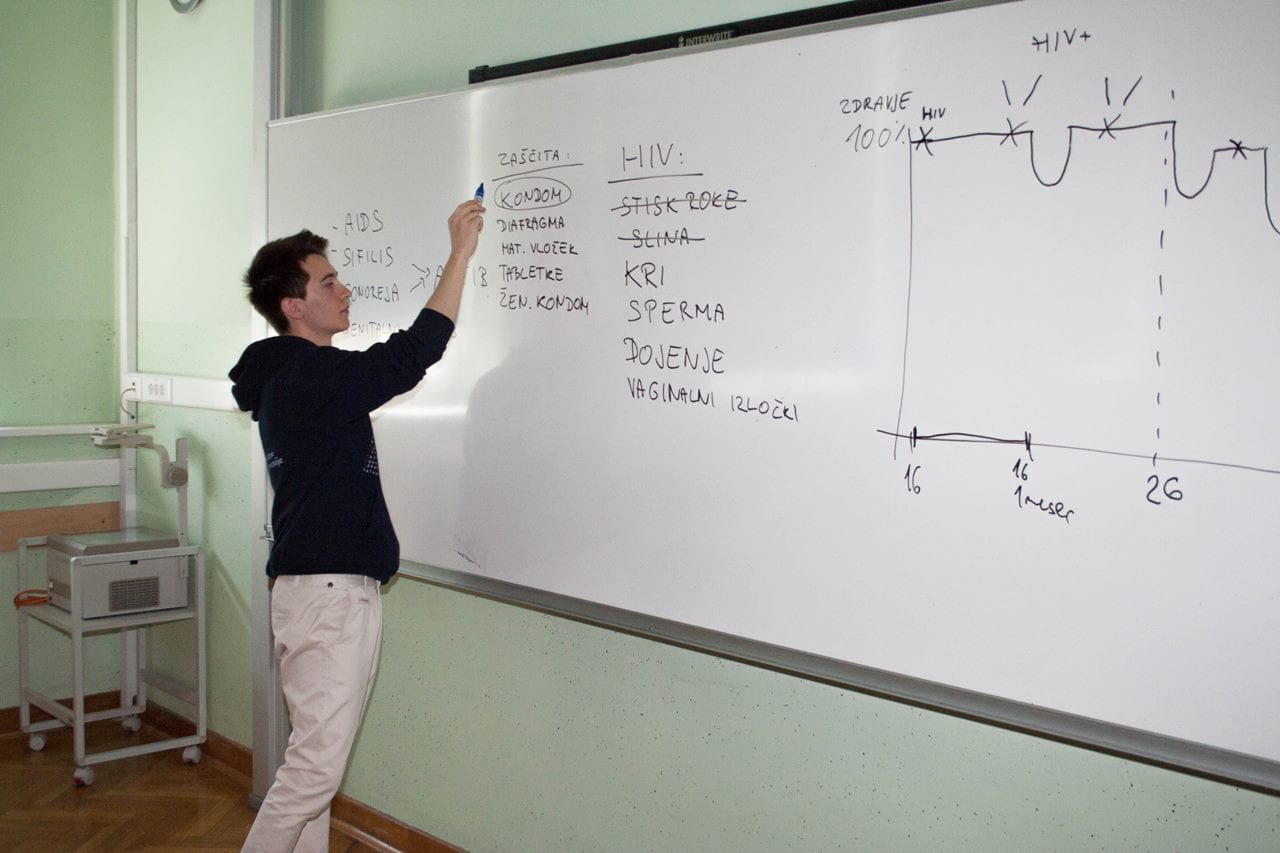 INTERWRITE
- AIDS
- SIFILIS
GONOREJA
GENITALN
ZAŠČITA:
KONDOM
DIAFRAGMA
MAT. VLOŽEK
TABLETKE
ŽEN. KONDOM
HIV:
STISK ROKE
SLINA
KRI
SPERMA
DOJENJE
VAGINALNI IZLOČKI
HIV+
ZDRAVJE
HIV
100%
16
16
1 mesec
26